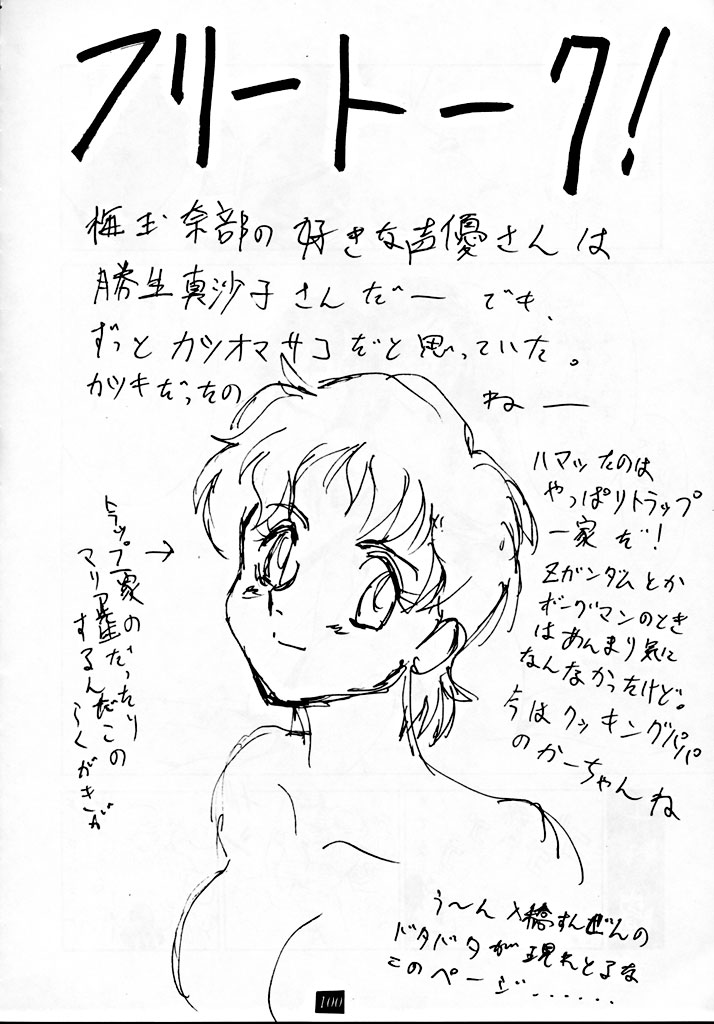 フリートーク!
梅玉奈部の好きな声優さんは
勝生真沙子さんだー でも、
ずっとカツオマサコだと思っていた。
カツキだったの
ねー
ハマッたのは
やっぱりトラップ
一家だ!
Zガンダムとか
ボーグマンのとき
はあんまり気に
なんなかったけど。
今はクッキングパパ
のかーちゃんね
トラップ一家の
マリア先生だったり
するんだこの
らくがきが
→
う〜ん 〆橋すんぜんの
ドタバタが現れとるな
このページ……
100